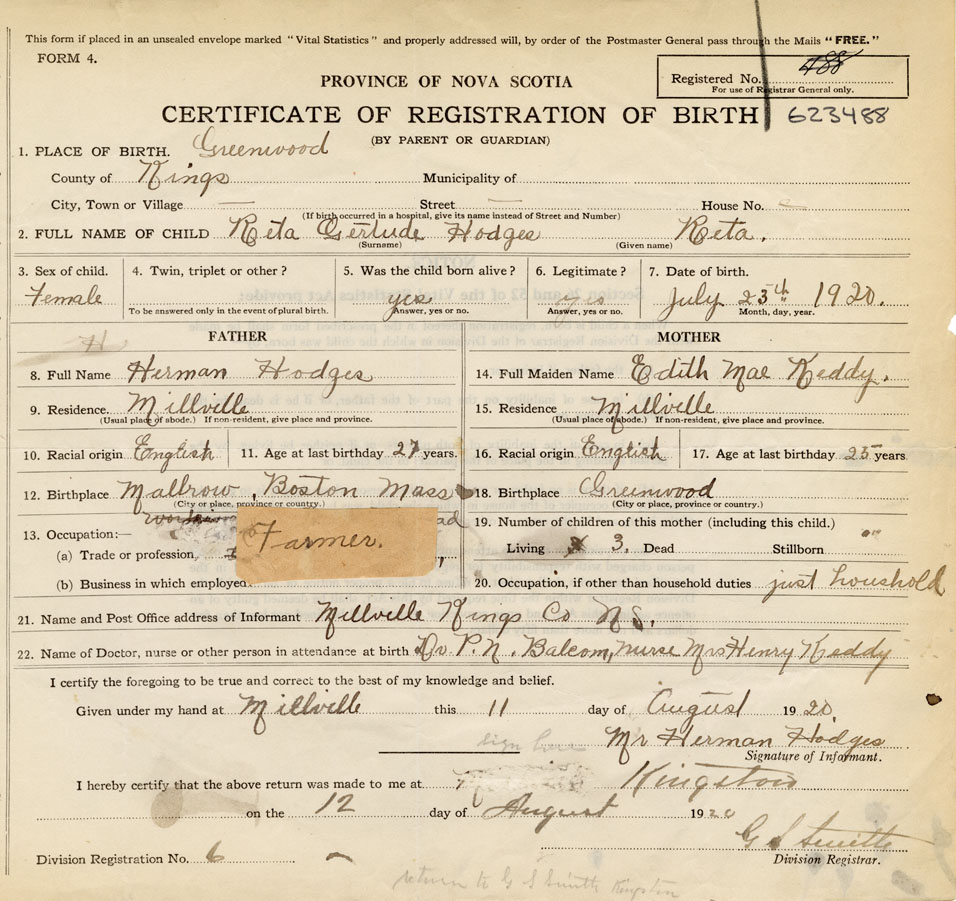 This form if placed in an unsealed envelope marked "Vital Statistics" and properly addressed will, by order of the Postmaster General pass through the Mails "FREE."
FORM 4.
488
PROVINCE OF NOVA SCOTIA
Registered No.
For use of Registrar General only.
CERTIFICATE OF REGISTRATION OF BIRTH 623488
(BY PARENT OR GUARDIAN)
1. PLACE OF BIRTH. Greenwood
County of Kings Municipality of
City, Town or Village — Street — House No.
(If birth occurred in a hospital, give its name instead of Street and Number)
2. FULL NAME OF CHILD Reta Gertude Hodges Reta.
(Surname) (Given name)
3. Sex of child. 4. Twin, triplet or other? 5. Was the child born alive? 6. Legitimate? 7. Date of birth.
Female yes yes July 23th 1920.
To be answered only in the event of plural birth. Answer, yes or no. Answer, yes or no. Month, day, year.
H FATHER MOTHER
8. Full Name Herman Hodges 14. Full Maiden Name Edith Mae Keddy.
9. Residence. Millville 15. Residence Millville
(Usual place of abode.) If non-resident, give place and province. (Usual place of abode.) If non-resident, give place and province.
10. Racial origin English 11. Age at last birthday 27 years. 16. Racial origin English 17. Age at last birthday 25 years
12. Birthplace Mallrow, Boston Mass 18. Birthplace Greenwood
(City or place, province or country.) (City or place, province or country.)
13. Occupation:— 19. Number of children of this mother (including this child.)
(a) Trade or profession Farmer. Living 3. Dead Stillborn
(b) Business in which employed 20. Occupation, if other than household duties just houshold
21. Name and Post Office address of Informant Millville Kings Co N S.
22. Name of Doctor, nurse or other person in attendance at birth Dr. P. N. Balcom, nurse Mrs Henry Keddy
I certify the foregoing to be true and correct to the best of my knowledge and belief.
Given under my hand at Millville this 11 day of August 1920.
sign here Mr Herman Hodges
Signature of Informant.
I hereby certify that the above return was made to me at Kingston
on the 12 day of August 1920
G S Smith
Division Registration No. 6 Division Registrar.
return to G S Smith Kingston